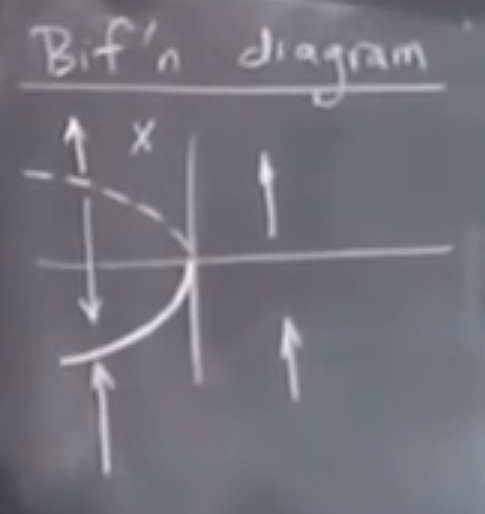 Bif'n diagram
x